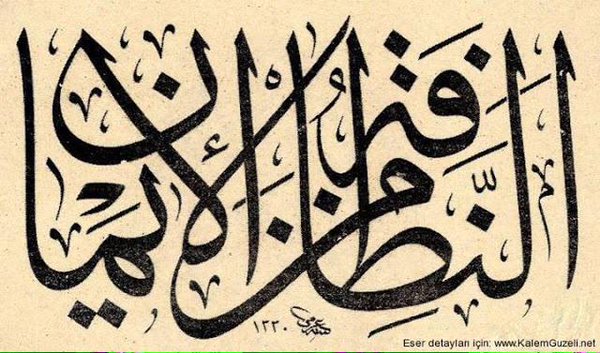 النَّظَافَةُ مِنَ الْإِيمَانِ
١٢٢٠
Eser detayları için: www.KalemGuzeli.net